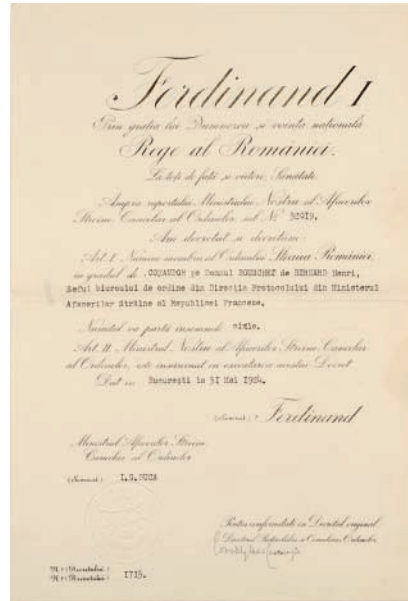 Ferdinand I
Prin grația lui Dumnezeu și voința națională
Rege al României.
La toți de față și viitori, Sănătate.
Asupra raportului Ministrului Nostru al Afacerilor
Străine Cancelar al Ordinelor, sub No 32919.
Am decretat și decretăm:
Art. I. Numim membru al Ordinului Steaua României,
in gradul de COMANDOR pe Domnul BOUSCHET de BERNARD Henri,
Seful biuroului de ordine din Direcția Protocolului din Ministerul
Afacerilor Străine al Republicei Franceze.
Numitul va purta insemnele civile.
Art. II. Ministrul Nostru al Afacerilor Străine Cancelar
al Ordinelor, este insărcinat cu executarea acestui Decret.
Dat in București la 31 Mai 1924.
(Semnat) Ferdinand
Ministrul Afacerilor Străine
Cancelar al Ordinelor
(Semnat) I.G. DUCA
Pentru conformitate cu Decretul original
Directorul Protocolului și Cancelariei Ordinelor
No (Brevetului)
No (Decretului) 1715.